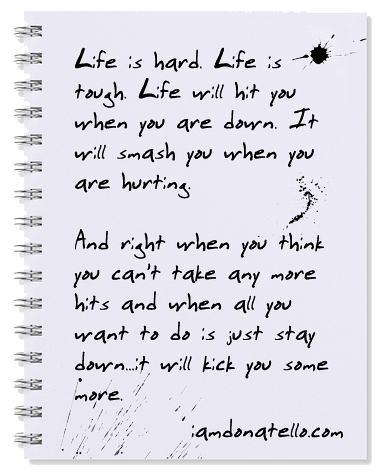 Life is hard. Life is
tough. Life will hit you
when you are down. It
will smash you when you
are hurting.
And right when you think
you can't take any more
hits and when all you
want to do is just stay
down...it will kick you some
more.
iamdonatello.com